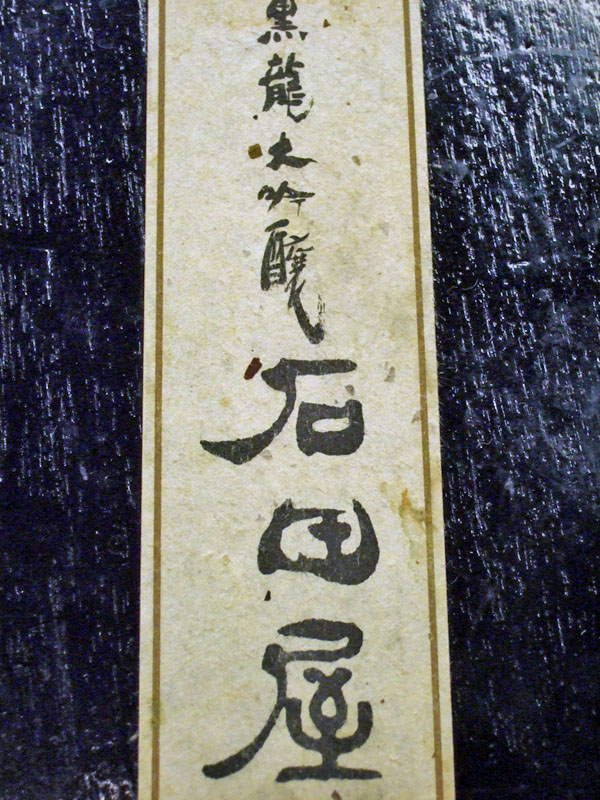 黒龍大吟醸石田屋